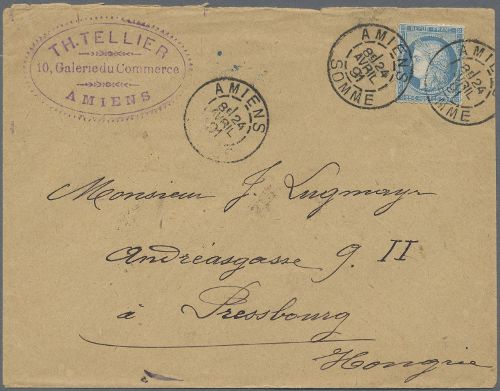 TH. TELLIER
10, Galerie du Commerce
AMIENS
AMIENS
24
AVRIL
91
SOMME
REPUB. FRANC.
AMIENS
24
AVRIL
91
SOMME
AMIENS
24
AVRIL
91
Monsieur J. Lugmayr
Andréasgasse 9. II
à Pressbourg
Hongrie